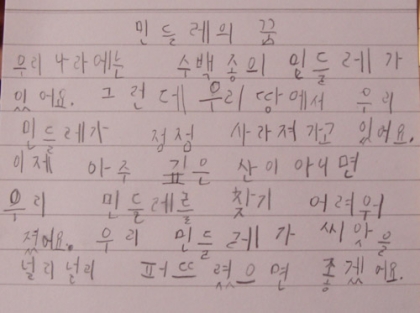 민들레의 꿈
우리 나라에는 수백 종의 민들레가
있어요. 그런데 우리 땅에서 우리
민들레가 점점 사라져가고 있어요.
이제 아주 깊은 산이 아니면
우리 민들레를 찾기 어려워
졌어요. 우리 민들레가 씨앗을
널리널리 퍼뜨렸으면 좋겠어요.